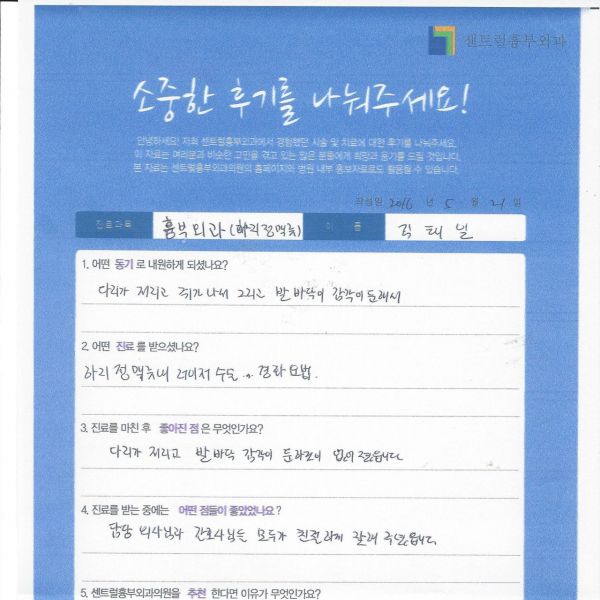 센트럴흉부외과
소중한 후기를 나눠주세요!
안녕하세요! 저희 센트럴흉부외과에서 경험했던 시술 및 치료에 대한 후기를 나눠주세요.
이 자료는 여러분과 비슷한 고민을 겪고 있는 많은 분들에게 희망과 용기를 드릴 것입니다.
본 자료는 센트럴흉부외과의원의 홈페이지와 병원 내부 홍보자료로도 활용될 수 있습니다.
작성일 2016 년 5 월 21 일
진료과목 흉부외과 (하지정맥류) 이 름
1. 어떤 동기로 내원하게 되셨나요?
다리가 저리고 쥐가 나서 그리고 발바닥이 감각이 둔해서
2. 어떤 진료를 받으셨나요?
하지정맥류 레이저 수술 경화요법.
3. 진료를 마친 후 좋아진 점은 무엇인가요?
다리가 저리고 발바닥 감각이 없어졌습니다
4. 진료를 받는 중에는 어떤 점들이 좋았었나요?
담당 의사님과 간호사님들 모두가 친절하게 잘해 주셨습니다
5. 센트럴흉부외과의원을 추천 한다면 이유가 무엇인가요?